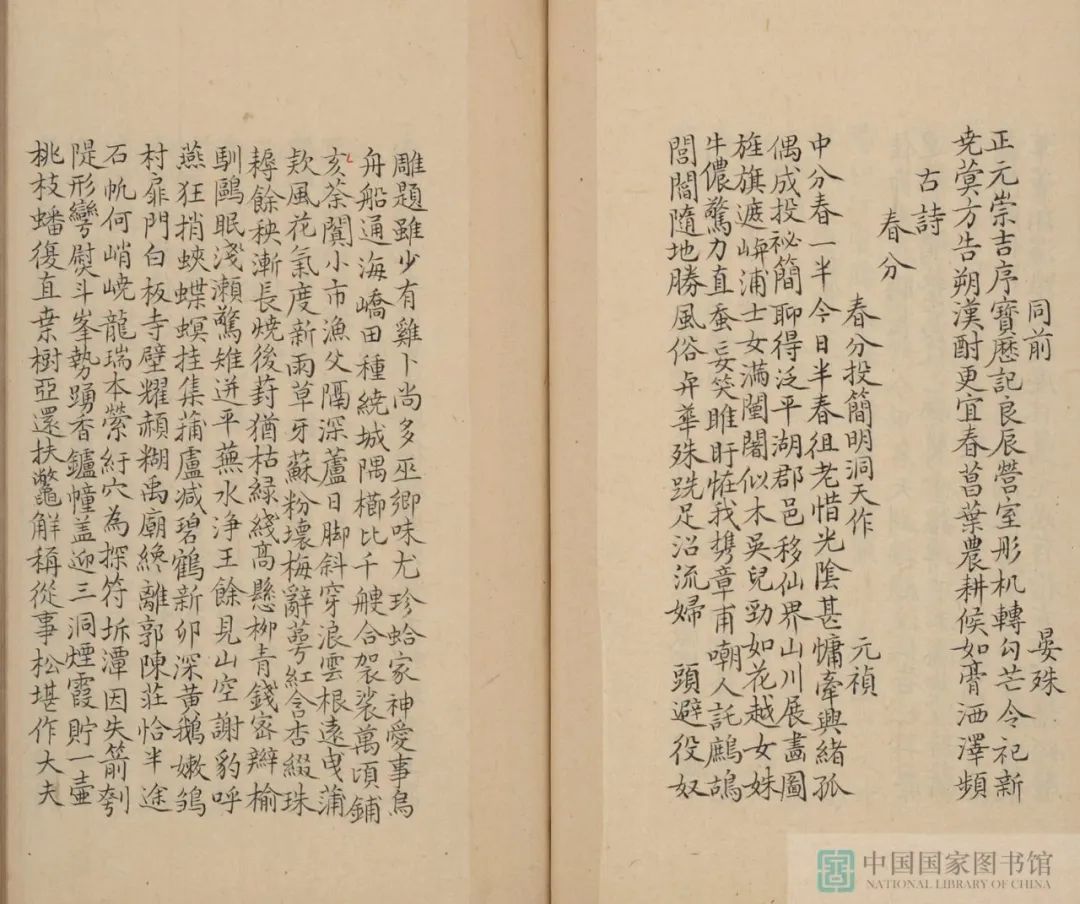 同前 晏殊
正元崇吉序寶歷記良辰營室彤机轉勾芒令祀新
尭蓂方告朔漢酎更宜春菖葉農耕候如膏洒澤頻
古詩
春分
春分投簡明洞天作 元禎
中分春一半今日半春徂老惜光陰甚慵牽興緒孤
偶成投祕簡聊得泛平湖郡邑移仙界山川展畫圖
旌旗遮嶼浦士女滿闉闍似木吳兒勁如花越女姝
牛儂驚力直蚕妾笑睢盱恠我携章甫嘲人託鷓鴣
閭閻隨地勝風俗弁華殊跣足沿流婦 頭避役奴
雕題雖少有雞卜尚多巫鄉味尤珍蛤家神愛事烏
舟船通海嶠田種繞城隅櫛比千艘合袈裟萬頃鋪
亥茶闐小市漁父隔深蘆日脚斜穿浪雲根遠曳蒲
欵風花氣度新雨草牙蘇粉壞梅辭萼紅含杏綴珠
耨餘秧漸長燒後葑猶枯緑綫髙懸柳青錢宻辮榆
馴鷗眠淺瀨驚雉迸平蕪水浄王餘見山空謝豹呼
燕狂捎蛺蝶螟挂集蒲盧減碧鶴新卵深黄鵝嫩鶵
村扉門白板寺壁耀赬糊禹廟纔離郭陳莊恰半途
石帆何峭嶢龍瑞本縈紆穴為探符坼潭因失箭刳
隄形彎熨斗峯勢踴香鑪幢盖迎三洞煙霞貯一壷
桃枝蟠復直桒樹亞還扶鼈解稱從事松堪作大夫
中国国家图书馆
NATIONAL LIBRARY OF CHINA